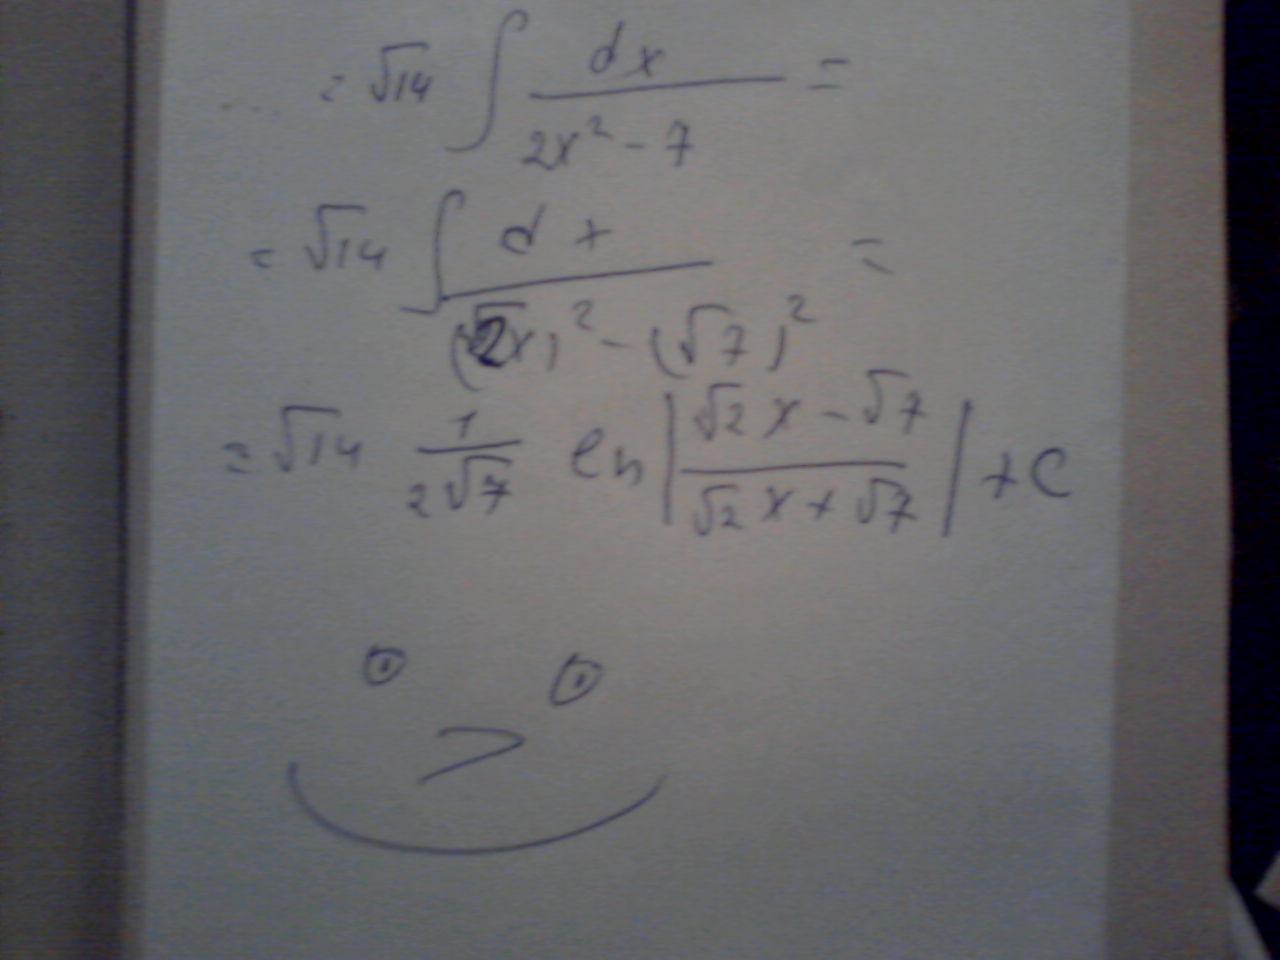 ... = √14 ∫ dx / (2x² - 7) =
= √14 ∫ dx / ((√2x)² - (√7)²) =
= √14 1/(2√7) ln |(√2x - √7)/(√2x + √7)| + C